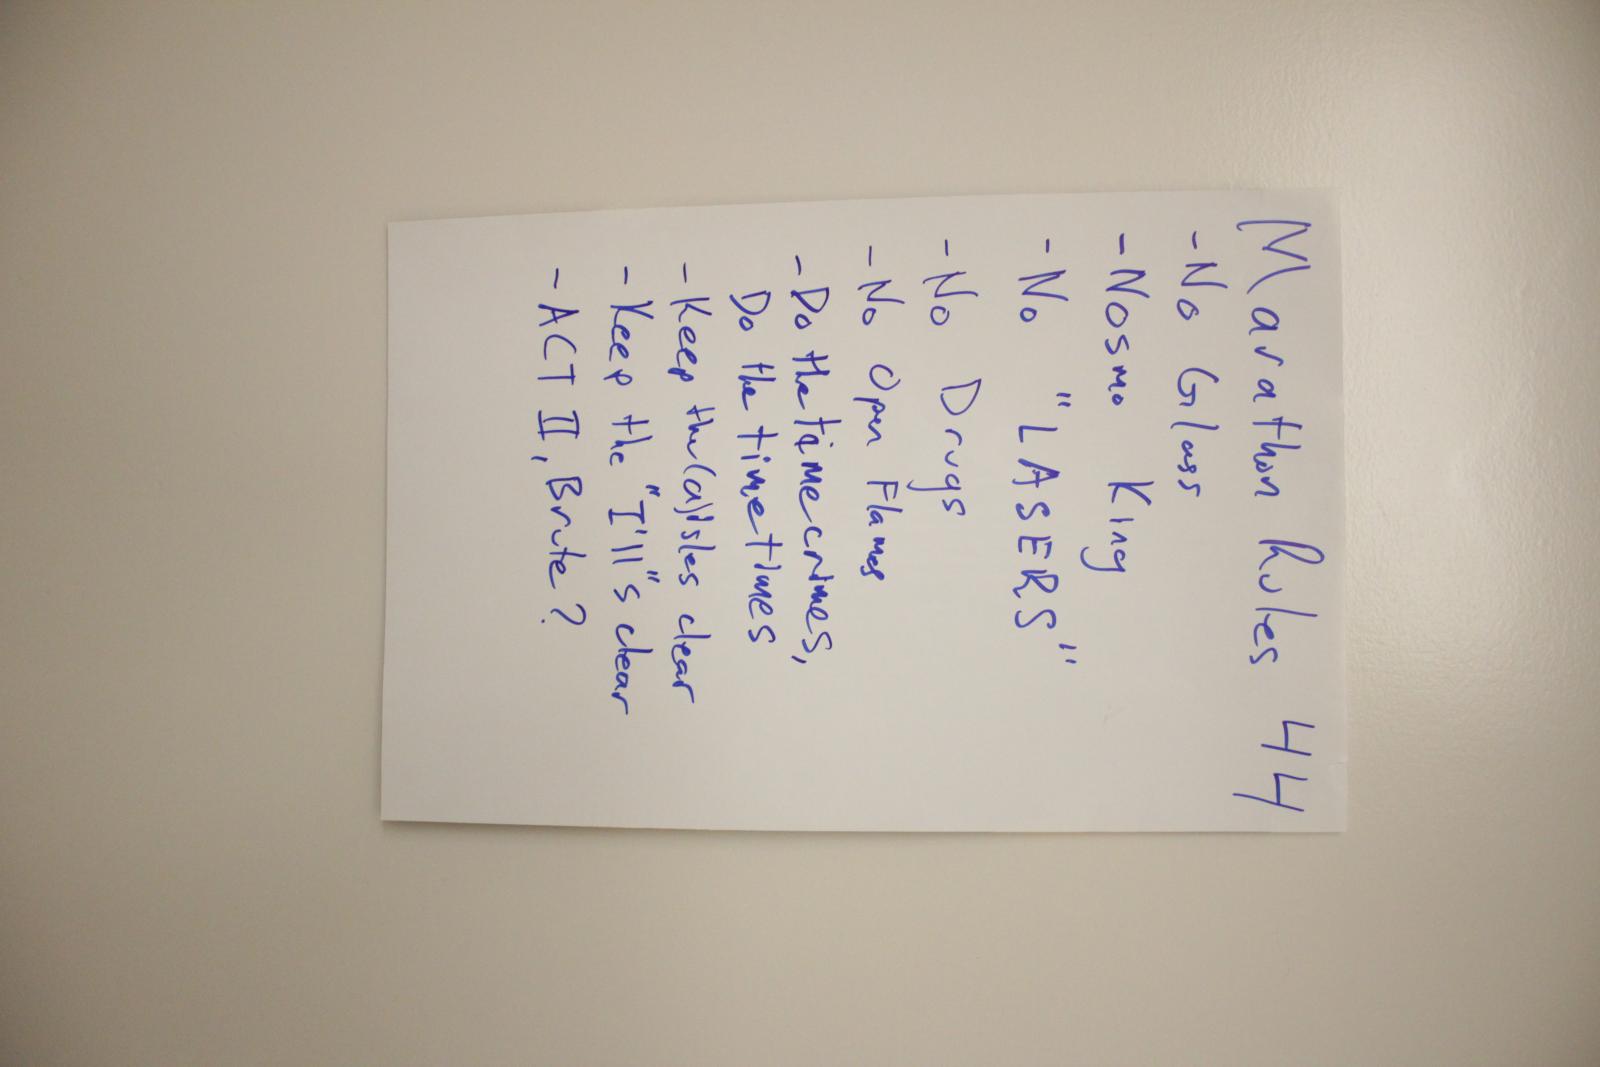 Marathon Rules 44
- No Glass
- Nosmo King
- No "LASERS"
- No Drugs
- No Open Flames
- Do the timecrimes,
Do the timetimes
- Keep the (a)isles clear
- Keep the "I'll"s clear
- ACT II, Brute?